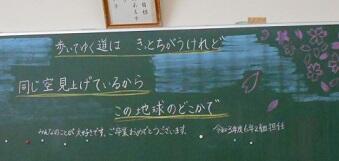 歩いてゆく道は きっとちがうけれど
同じ空見上げているから
この地球のどこかで
みんなのことが大好きです。ご卒業おめでとうございます。